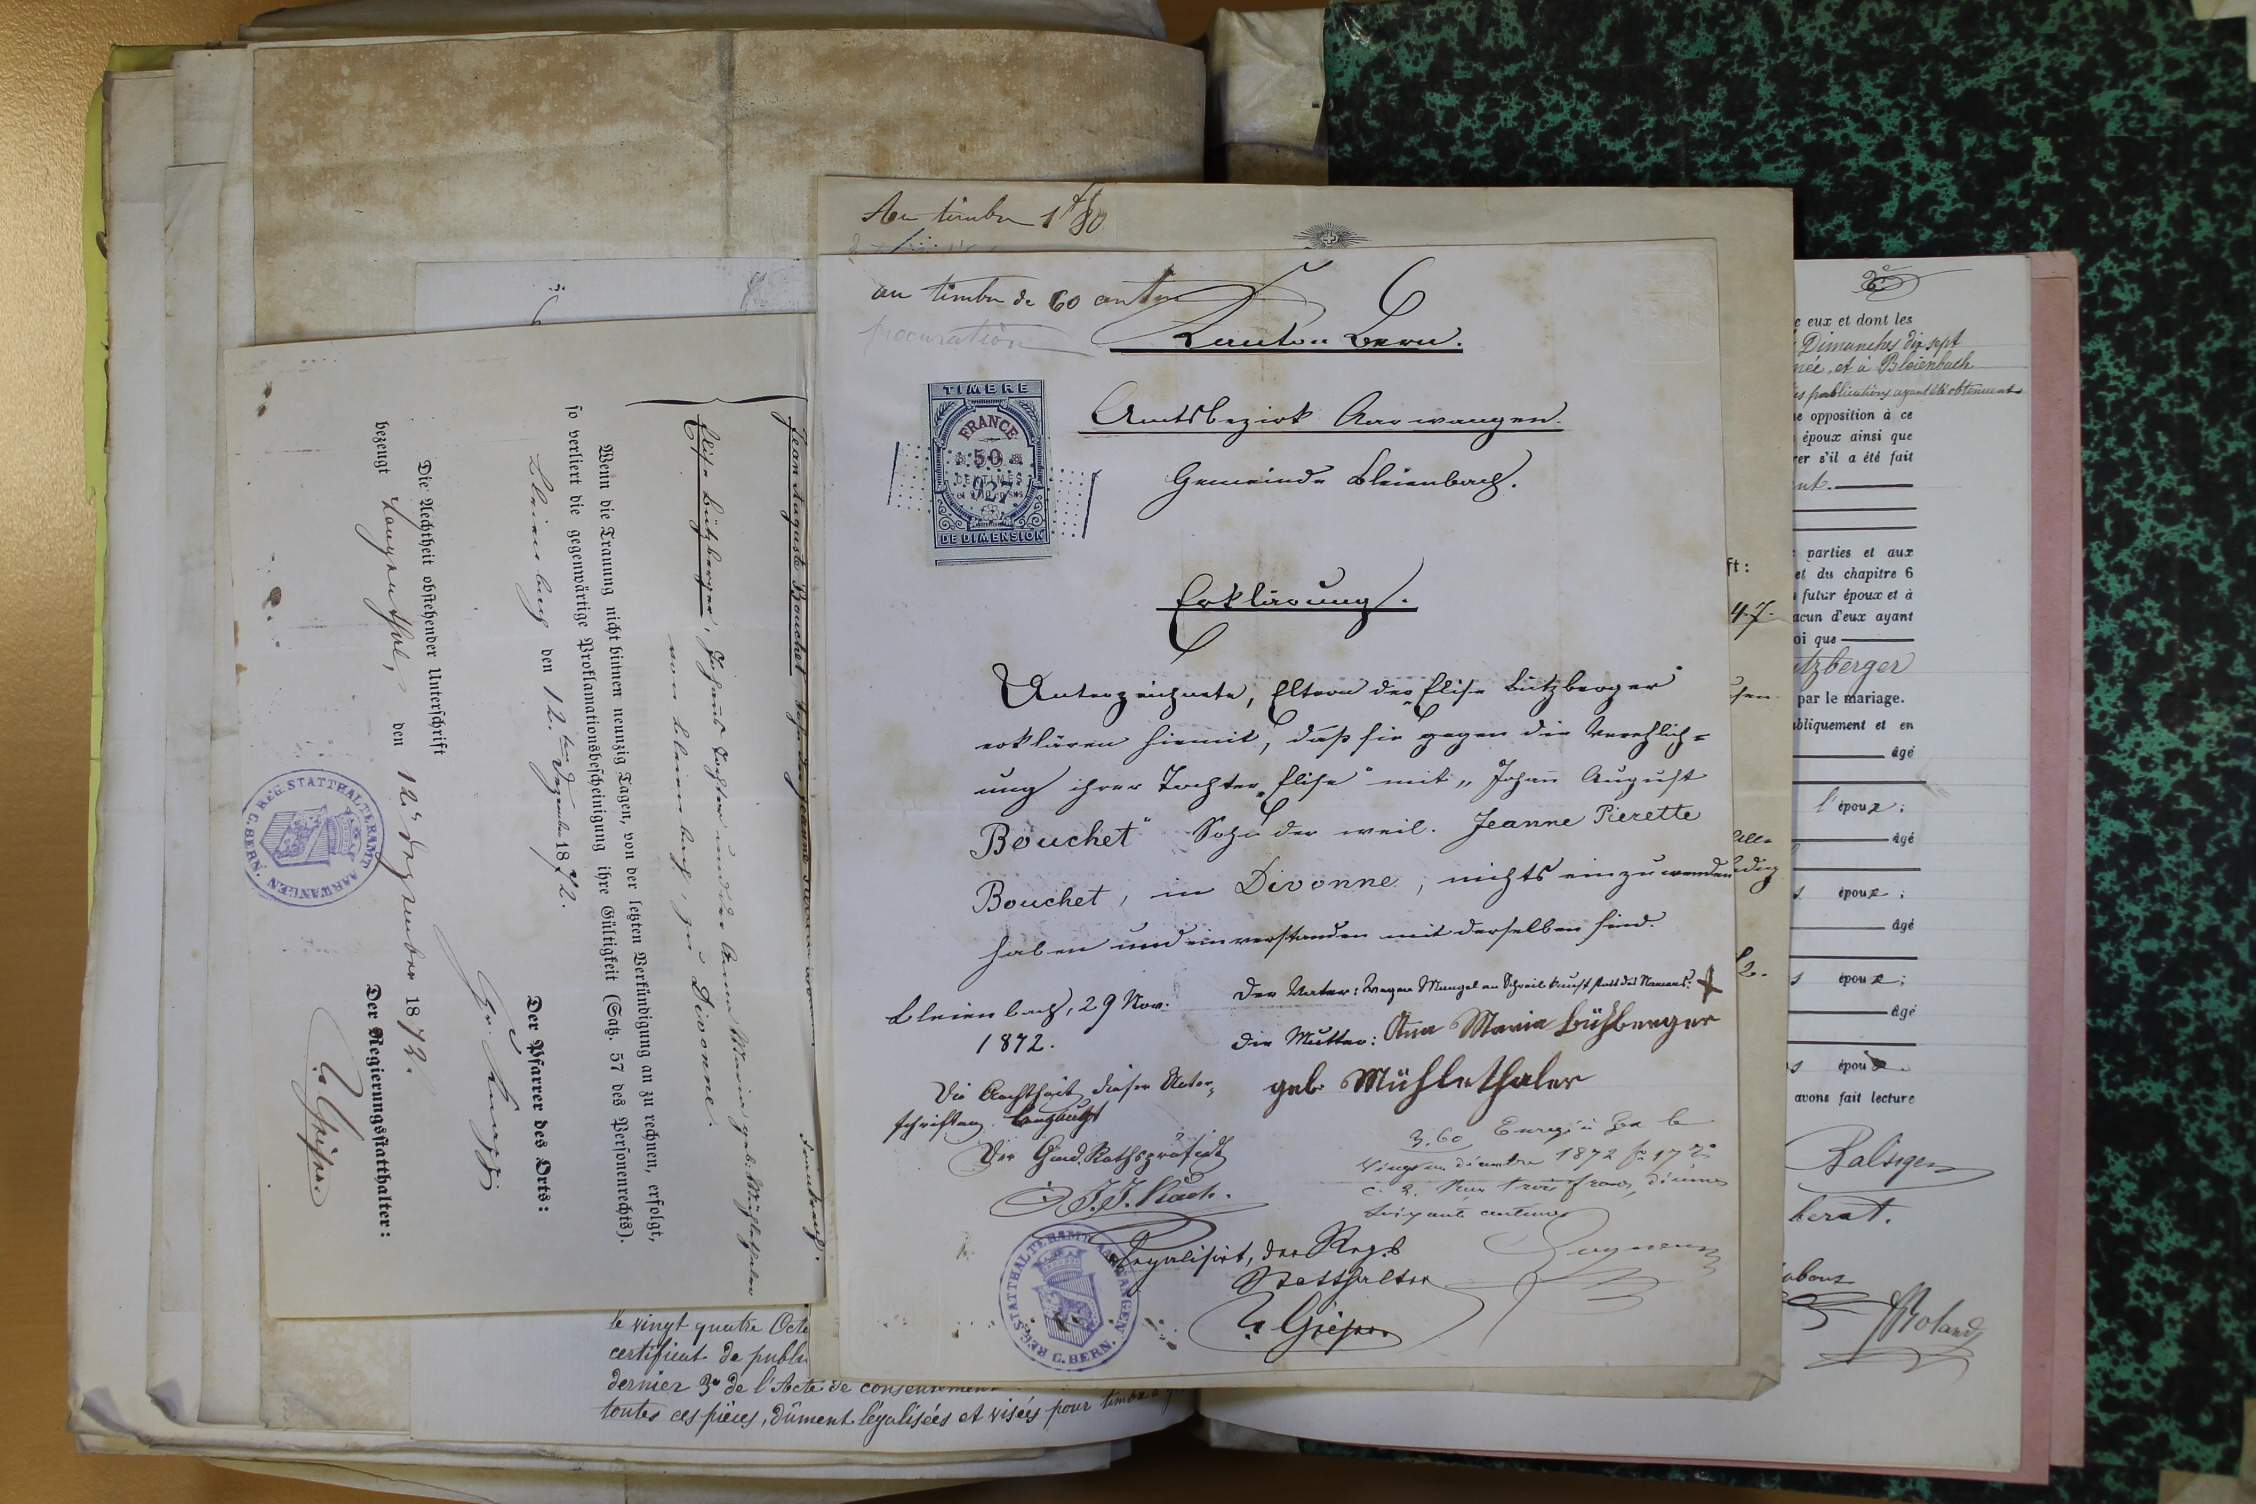 Au timbre 1f80
au timbre de 60 centes
procuration
Kanton Bern.
TIMBRE
FRANCE
50
CENTIMES
927
DE DIMENSION
Amtsbezirk Aarwangen.
Gemeinde Bleienbach.
Erklärung.
Unterzeichnete, Eltern der „Elise Bützberger"
erklären hiemit, daß sie gegen die Verehlich=
ung ihrer Tochter „Elise" mit „Johañ August
Bouchet" Sohn der weil. Jeanne Pierette
Bouchet, in Divonne, nichts einzuwenden
haben und einverstanden mit derselben sind.
Bleienbach, 29 Nov.
1872.
Der Vater: wegen Mangel an Schreibkunst statt des Namens: +
Die Mutter: Ana Maria Bützberger
geb. Mühlethaler
Die Aechtheit dieser Unter-
schriften bezeugt
Der Gmd. Rathspräsidt
J. J.
3.60 Enreg. à Gex le
vingt un décembre 1872 fo 17 Ro
c. 2. Reçu trois francs, décimes
soixante centimes
Legalisirt, der Reg.
Statthalter
REG. STATTHALTERAMT AARWANGEN
C. BERN.
Jean Auguste Bouchet
Elise Bützberger, Johañs Tochter und der Anna Maria geb. Mühlethaler
von Bleienbach, zu Divonne.
Wenn die Trauung nicht binnen neunzig Tagen, von der letzten Verkündigung an zu rechnen, erfolgt,
so verliert die gegenwärtige Proklamationsbescheinigung ihre Gültigkeit (Satz. 57 des Personenrechts).
Bleienbach den 12.ten Dezember 1872.
Der Pfarrer des Orts:
Die Aechtheit obstehender Unterschrift
bezeugt Langenthal, den 12. Dezember 1872.
Der Regierungsstatthalter:
REG. STATTHALTERAMT AARWANGEN
C. BERN.
le vingt quatre Octo
certificat de publi
dernier 3o de l'Acte de consentement
toutes ces pièces, dûment légalisées et visées pour timbre
ft:
4.7.
e eux et dont les
Dimanches dix sept
née, et à Bleienbach
es publications ayant été obtenues
e opposition à ce
époux ainsi que
er s'il a été fait
nt.
parties et aux
et du chapitre 6
futur époux et à
acun d'eux ayant
oi que
utzberger
par le mariage.
bliquement et en
âgé
l'époux;
âgé
s époux;
âgé
s époux;
âgé
s époux
avons fait lecture
Balsiger